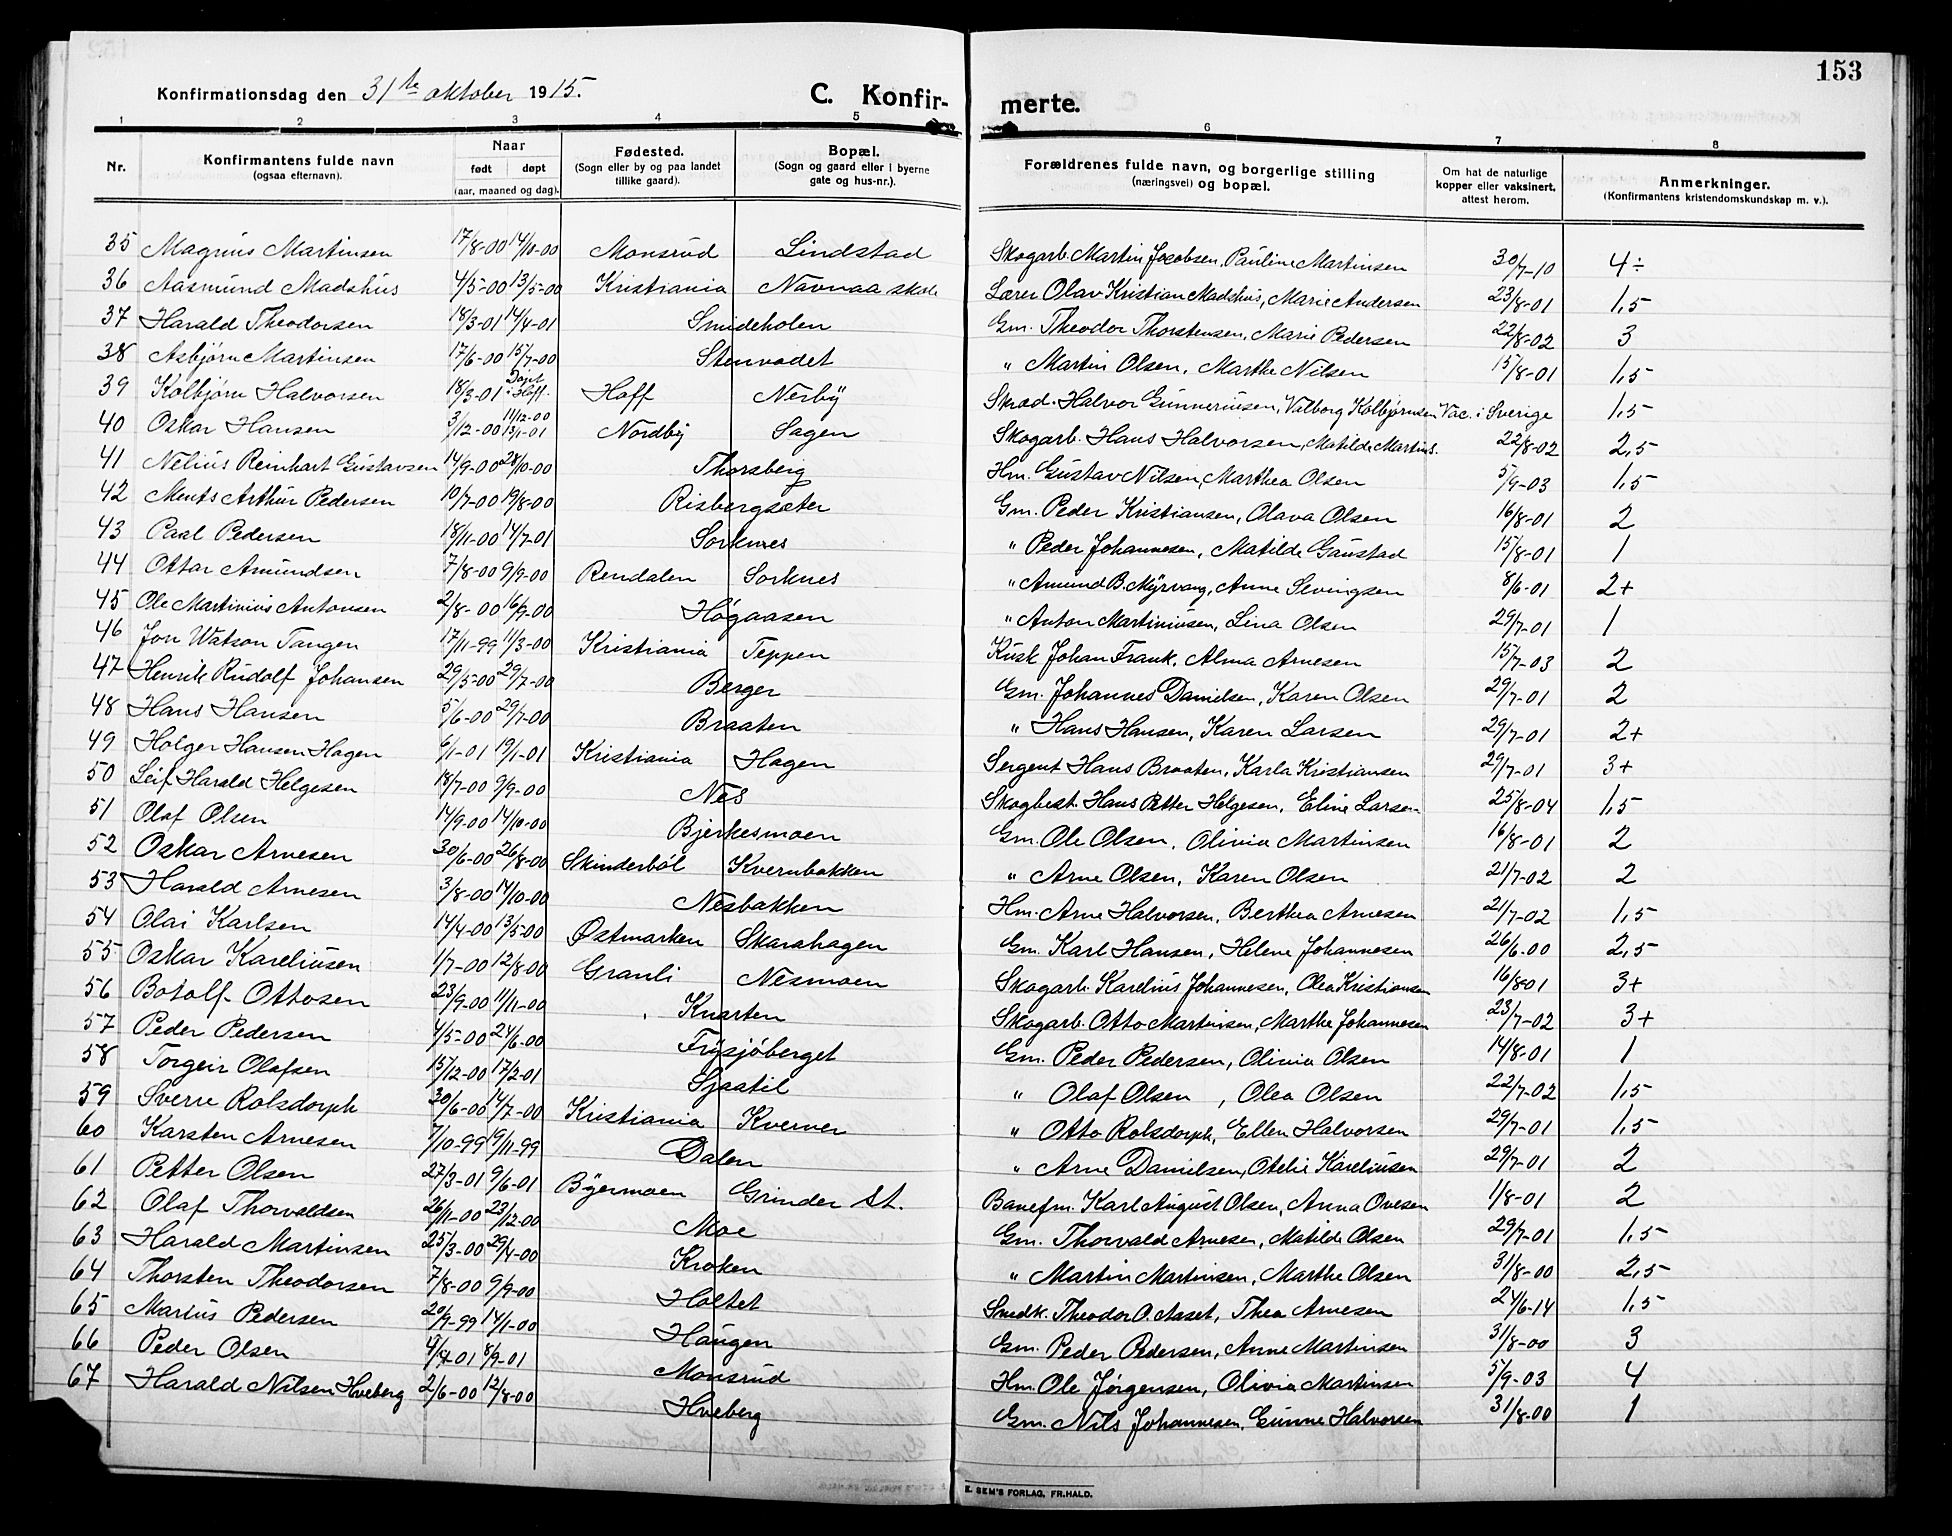 153
Konfirmationsdag den 31te oktober 1915.
C. Konfir- merte.
1 2 3 4 5 6 7 8
Nr. Konfirmantens fulde navn (ogsaa efternavn). Naar født døpt (aar, maaned og dag). Fødested. (Sogn eller by og paa landet tillike gaard). Bopæl. (Sogn og gaard eller i byerne gate og hus-nr.). Forældrenes fulde navn, og borgerlige stilling (næringsvei) og bopæl. Om hat de naturlige kopper eller vaksinert, attest herom. Anmerkninger. (Konfirmantens kristendomskundskap m. v.).
35 Magnus Martinsen 17/8-00 14/10-00 Monsrud Lindstad Skogarb. Martin Jacobsen, Pauline Martinsen 30/7-10 4÷
36 Aasmund Madshus 4/5-00 13/5-00 Kristiania Navnaa skole Lærer Olav Kristian Madshus, Marie Andersen 23/8-01 1,5
37 Harald Theodorsen 18/3-01 14/4-01 Smideholen Gm. Theodor Thorstensen, Marie Pedersen 22/8-02 3
38 Asbjørn Martinsen 17/6-00 15/7-00 Stenvadet " Martin Olsen, Marthe Nilsen 15/8-01 1,5
39 Kolbjørn Halvorsen 18/3-01 Døpt i Hoff. Hoff Nerby Skræd. Halvor Gunneriusen, Valborg Kolbjørnsen Vac. i Sverige 1,5
40 Oskar Hansen 3/12-00 11/12-00 13/1-01 Nordby Sagen Skogarb. Hans Halvorsen, Matilde Martins. 22/8-02 2,5
41 Nelius Reinhart Gustavsen 14/9-00 28/10-00 Thorsberg Hm. Gustav Nilsen, Marthea Olsen 5/9-03 1,5
42 Ments Arthur Pedersen 10/7-00 19/8-00 Risbergsæter Gm. Peder Kristiansen, Olava Olsen 16/8-01 2
43 Paal Pedersen 18/11-00 14/7-01 Sorknes " Peder Johannesen, Matilde Gaustad 15/8-01 1
44 Ottar Amundsen 7/8-00 9/9-00 Rendalen Sorknes " Amund B. Myrvang, Anne Sevingsen 8/6-01 2+
45 Ole Martinius Antonsen 2/8-00 16/9-00 Høgaasen " Anton Martiniusen, Lina Olsen 29/7-01 1
46 Jon Watson Tangen 17/11-99 11/3-00 Kristiania Teppen Kusk Johan Frank, Alma Arnesen 15/7-03 2
47 Henrik Rudolf Johansen 29/5-00 29/7-00 Berger Gm. Johannes Danielsen, Karen Olsen 29/7-01 2
48 Hans Hansen 5/6-00 29/7-00 Braaten " Hans Hansen, Karen Larsen 29/7-01 2+
49 Holger Hansen Hagen 6/1-01 19/1-01 Kristiania Hagen Sergent Hans Braaten, Karla Kristiansen 29/7-01 3+
50 Leif Harald Helgesen 18/7-00 9/9-00 Nes Skogbest. Hans Petter Helgesen, Eline Larsen 25/8-04 1,5
51 Olaf Olsen 14/9-00 14/10-00 Bjerkesmoen Gm. Ole Olsen, Olivia Martinsen 16/8-01 2
52 Oskar Arnesen 30/6-00 26/8-00 Skinderbøl Kvernbakken " Arne Olsen, Karen Olsen 21/7-02 2
53 Harald Arnesen 3/8-00 14/10-00 Nesbakken Hm. Arne Halvorsen, Berthea Arnesen 21/7-02 1,5
54 Olai Karlsen 14/4-00 13/5-00 Østmarken Skarahagen Gm. Karl Hansen, Helene Johannesen 26/6-00 2,5
55 Oskar Kareliusen 1/7-00 12/8-00 Granli Nesmoen Skogarb. Karelius Johannesen, Olea Kristiansen 16/8-01 3+
56 Botolf Ottosen 23/9-00 11/11-00 Knarten Skogarb. Otto Martinsen, Marthe Johannesen 23/7-02 3+
57 Peder Pedersen 4/5-00 24/6-00 Frysjøberget Gm. Peder Pedersen, Olivia Olsen 14/8-01 1
58 Torgeir Olafsen 15/12-00 17/2-01 Sjaatil " Olaf Olsen, Olea Olsen 22/7-02 1,5
59 Sverre Rolsdorph 30/6-00 14/7-00 Kristiania Kverner " Otto Rolsdorph, Ellen Halvorsen 29/7-01 1,5
60 Karsten Arnesen 7/10-99 19/11-99 Dalen " Arne Danielsen, Otelie Kareliusen 29/7-01 2
61 Petter Olsen 27/3-01 9/6-01 Byermoen Grinder St. Banefm. Karl August Olsen, Anna Ovesen 1/8-01 2
62 Olaf Thorvaldsen 26/11-00 23/12-00 Moe Gm. Thorvald Arnesen, Matilde Olsen 29/7-01 1,5
63 Harald Martinsen 25/3-00 29/4-00 Kroken " Martin Martinsen, Marthe Olsen 31/8-00 2,5
64 Thorsten Theodorsen 7/8-00 9/9-00 Holtet Smedk. Theodor O. Aaset, Thea Arnesen 24/6-14 1,5
65 Marius Pedersen 20/9-99 14/1-00 Haugen Gm. Peder Pedersen, Anne Martinsen 31/8-00 3
66 Peder Olsen 4/4-01 8/9-01 Monsrud Hm. Ole Jørgensen, Olivia Martinsen 5/9-03 4
67 Harald Nilsen Hveberg 2/6-00 12/8-00 Hveberg Gm. Nils Johannesen, Gunne Halvorsen 31/8-00 1
E. SEM'S FORLAG, FR.HALD.